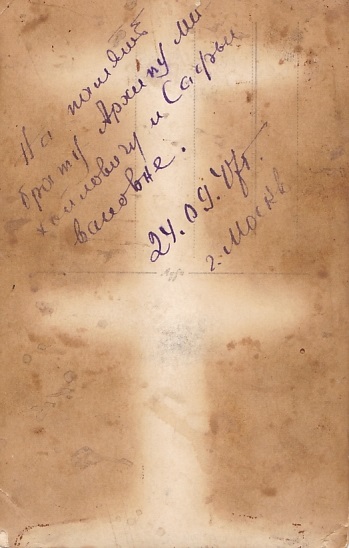 На памят
брату Архипу Ми
хайловичу и Софьи
Вановне.
24.09.47г.
г. Москв